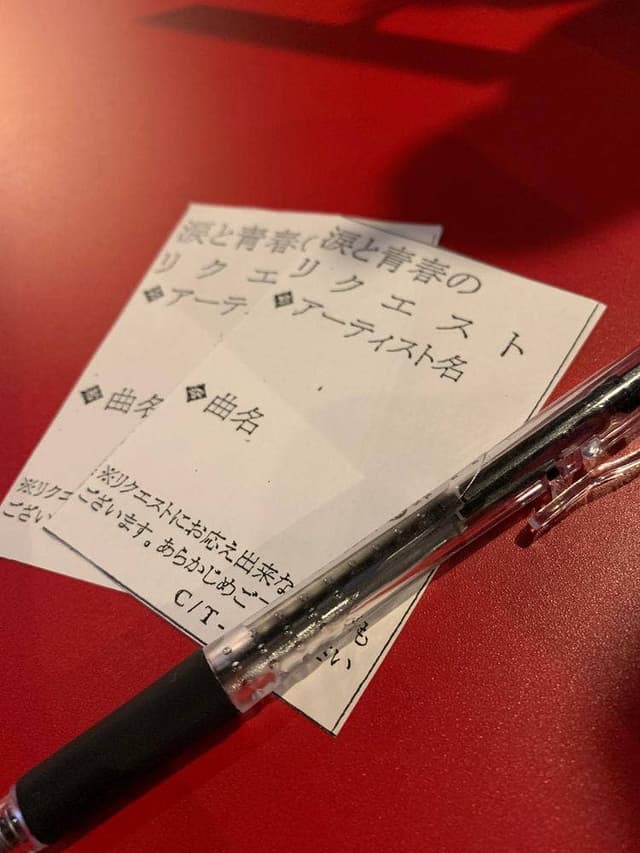 涙と青春の
リクエスト
アーティスト名
曲名
※リクエストにお応え出来な
ございます。あらかじめご
C/T-
も
さい
涙と青春
リクエ
アーテ
曲名
※リクエ
ござい